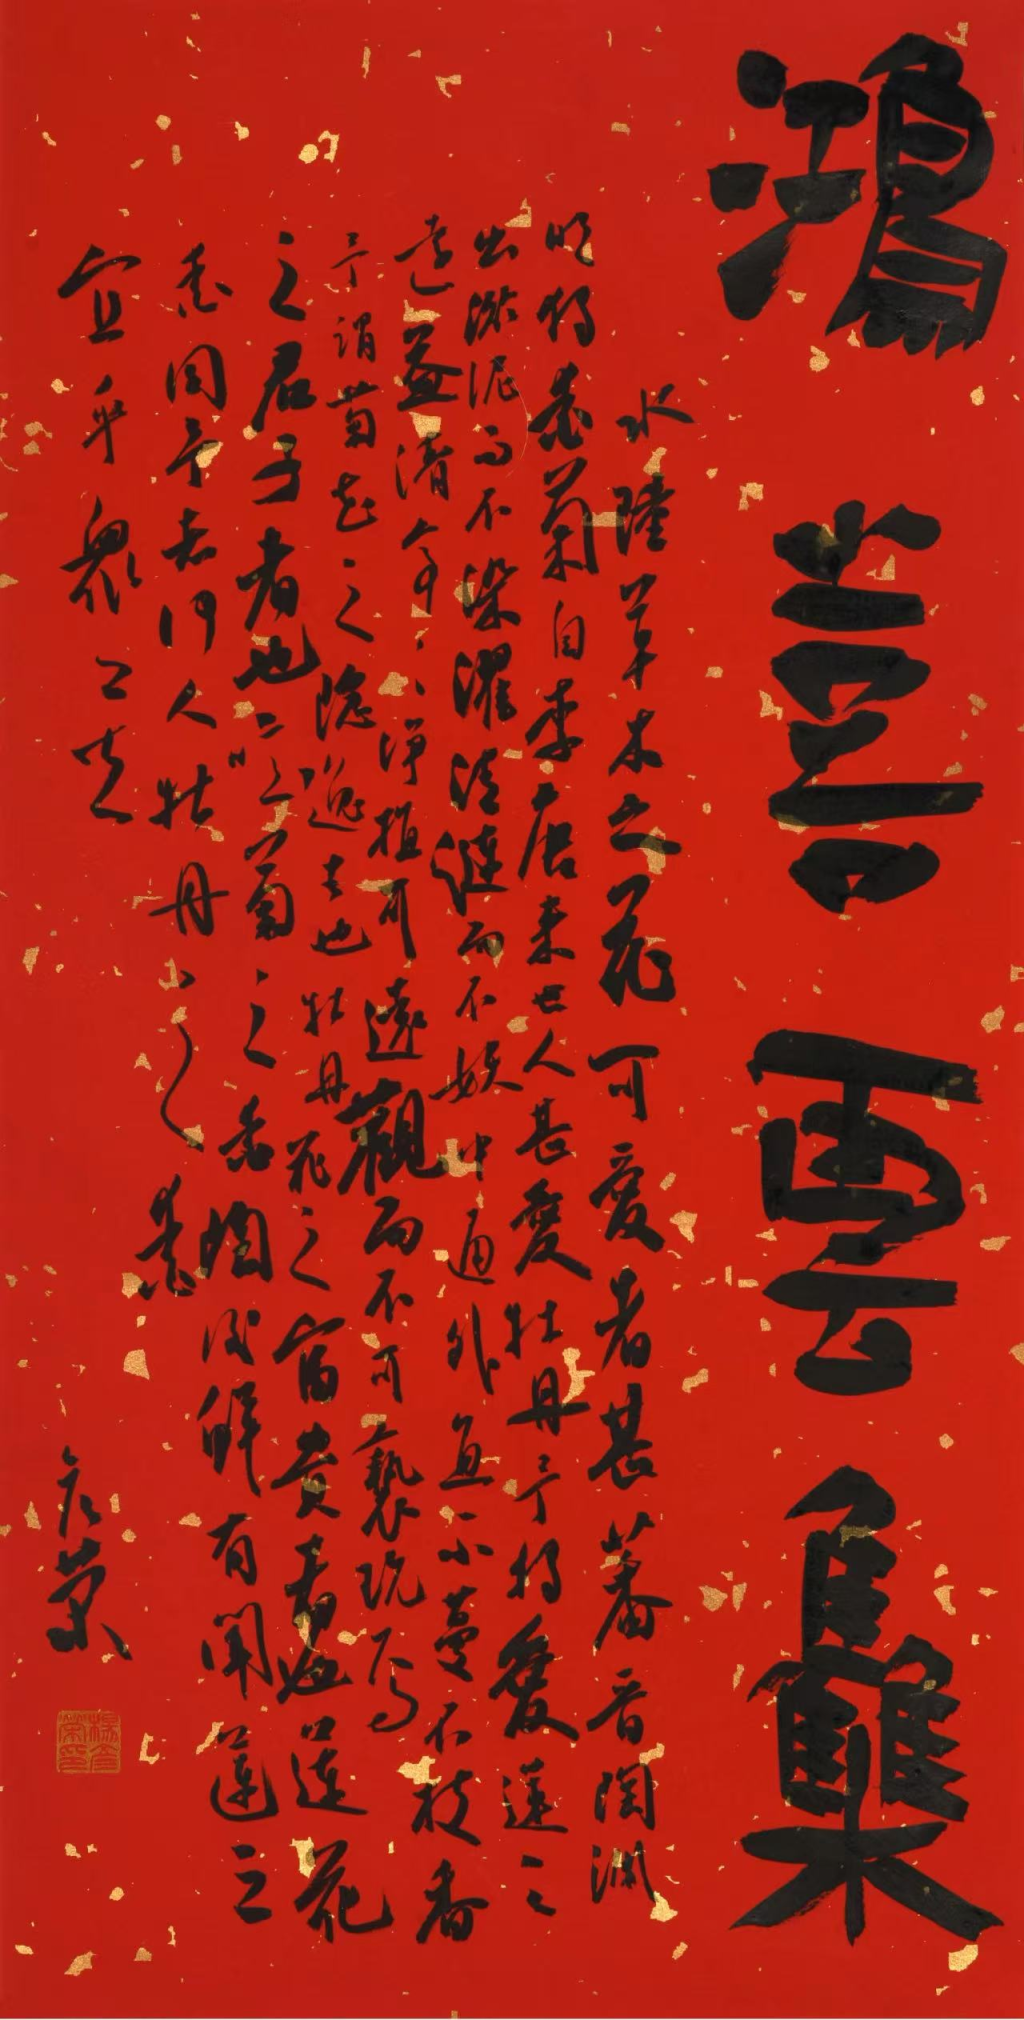 鴻喜雲集
水陸草木之花可愛者甚蕃晋陶渊
明独爱菊自李唐来世人甚愛牡丹予独愛蓮之
出淤泥而不染濯清漣而不妖中通外直不蔓不枝香
遠益清亭亭净植可遠觀而不可亵玩焉
予谓菊花之隐逸者也牡丹花之富贵者也蓮花
之君子者也噫菊之爱陶後鲜有闻蓮之
爱同予者何人牡丹之爱
宜乎衆矣
彦荣